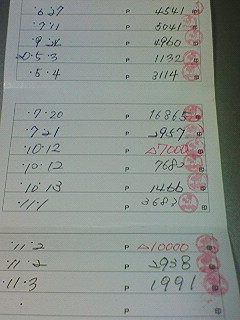 ・6・27 P 4541 印
・7・11 P 5041 印
・9・21 P 4960 印
20・5・3 P 1132 印
・5・4 P 3114 印
・7・20 P 16865 印
・7・21 P 2957 印
・10・12 P △7000 印
・10・12 P 7682 印
・10・13 P 1466 印
・11・1 P 3682 印
・11・2 P △10000 印
・11・2 P 2938 印
・11・3 P 1991 印
・ P 印